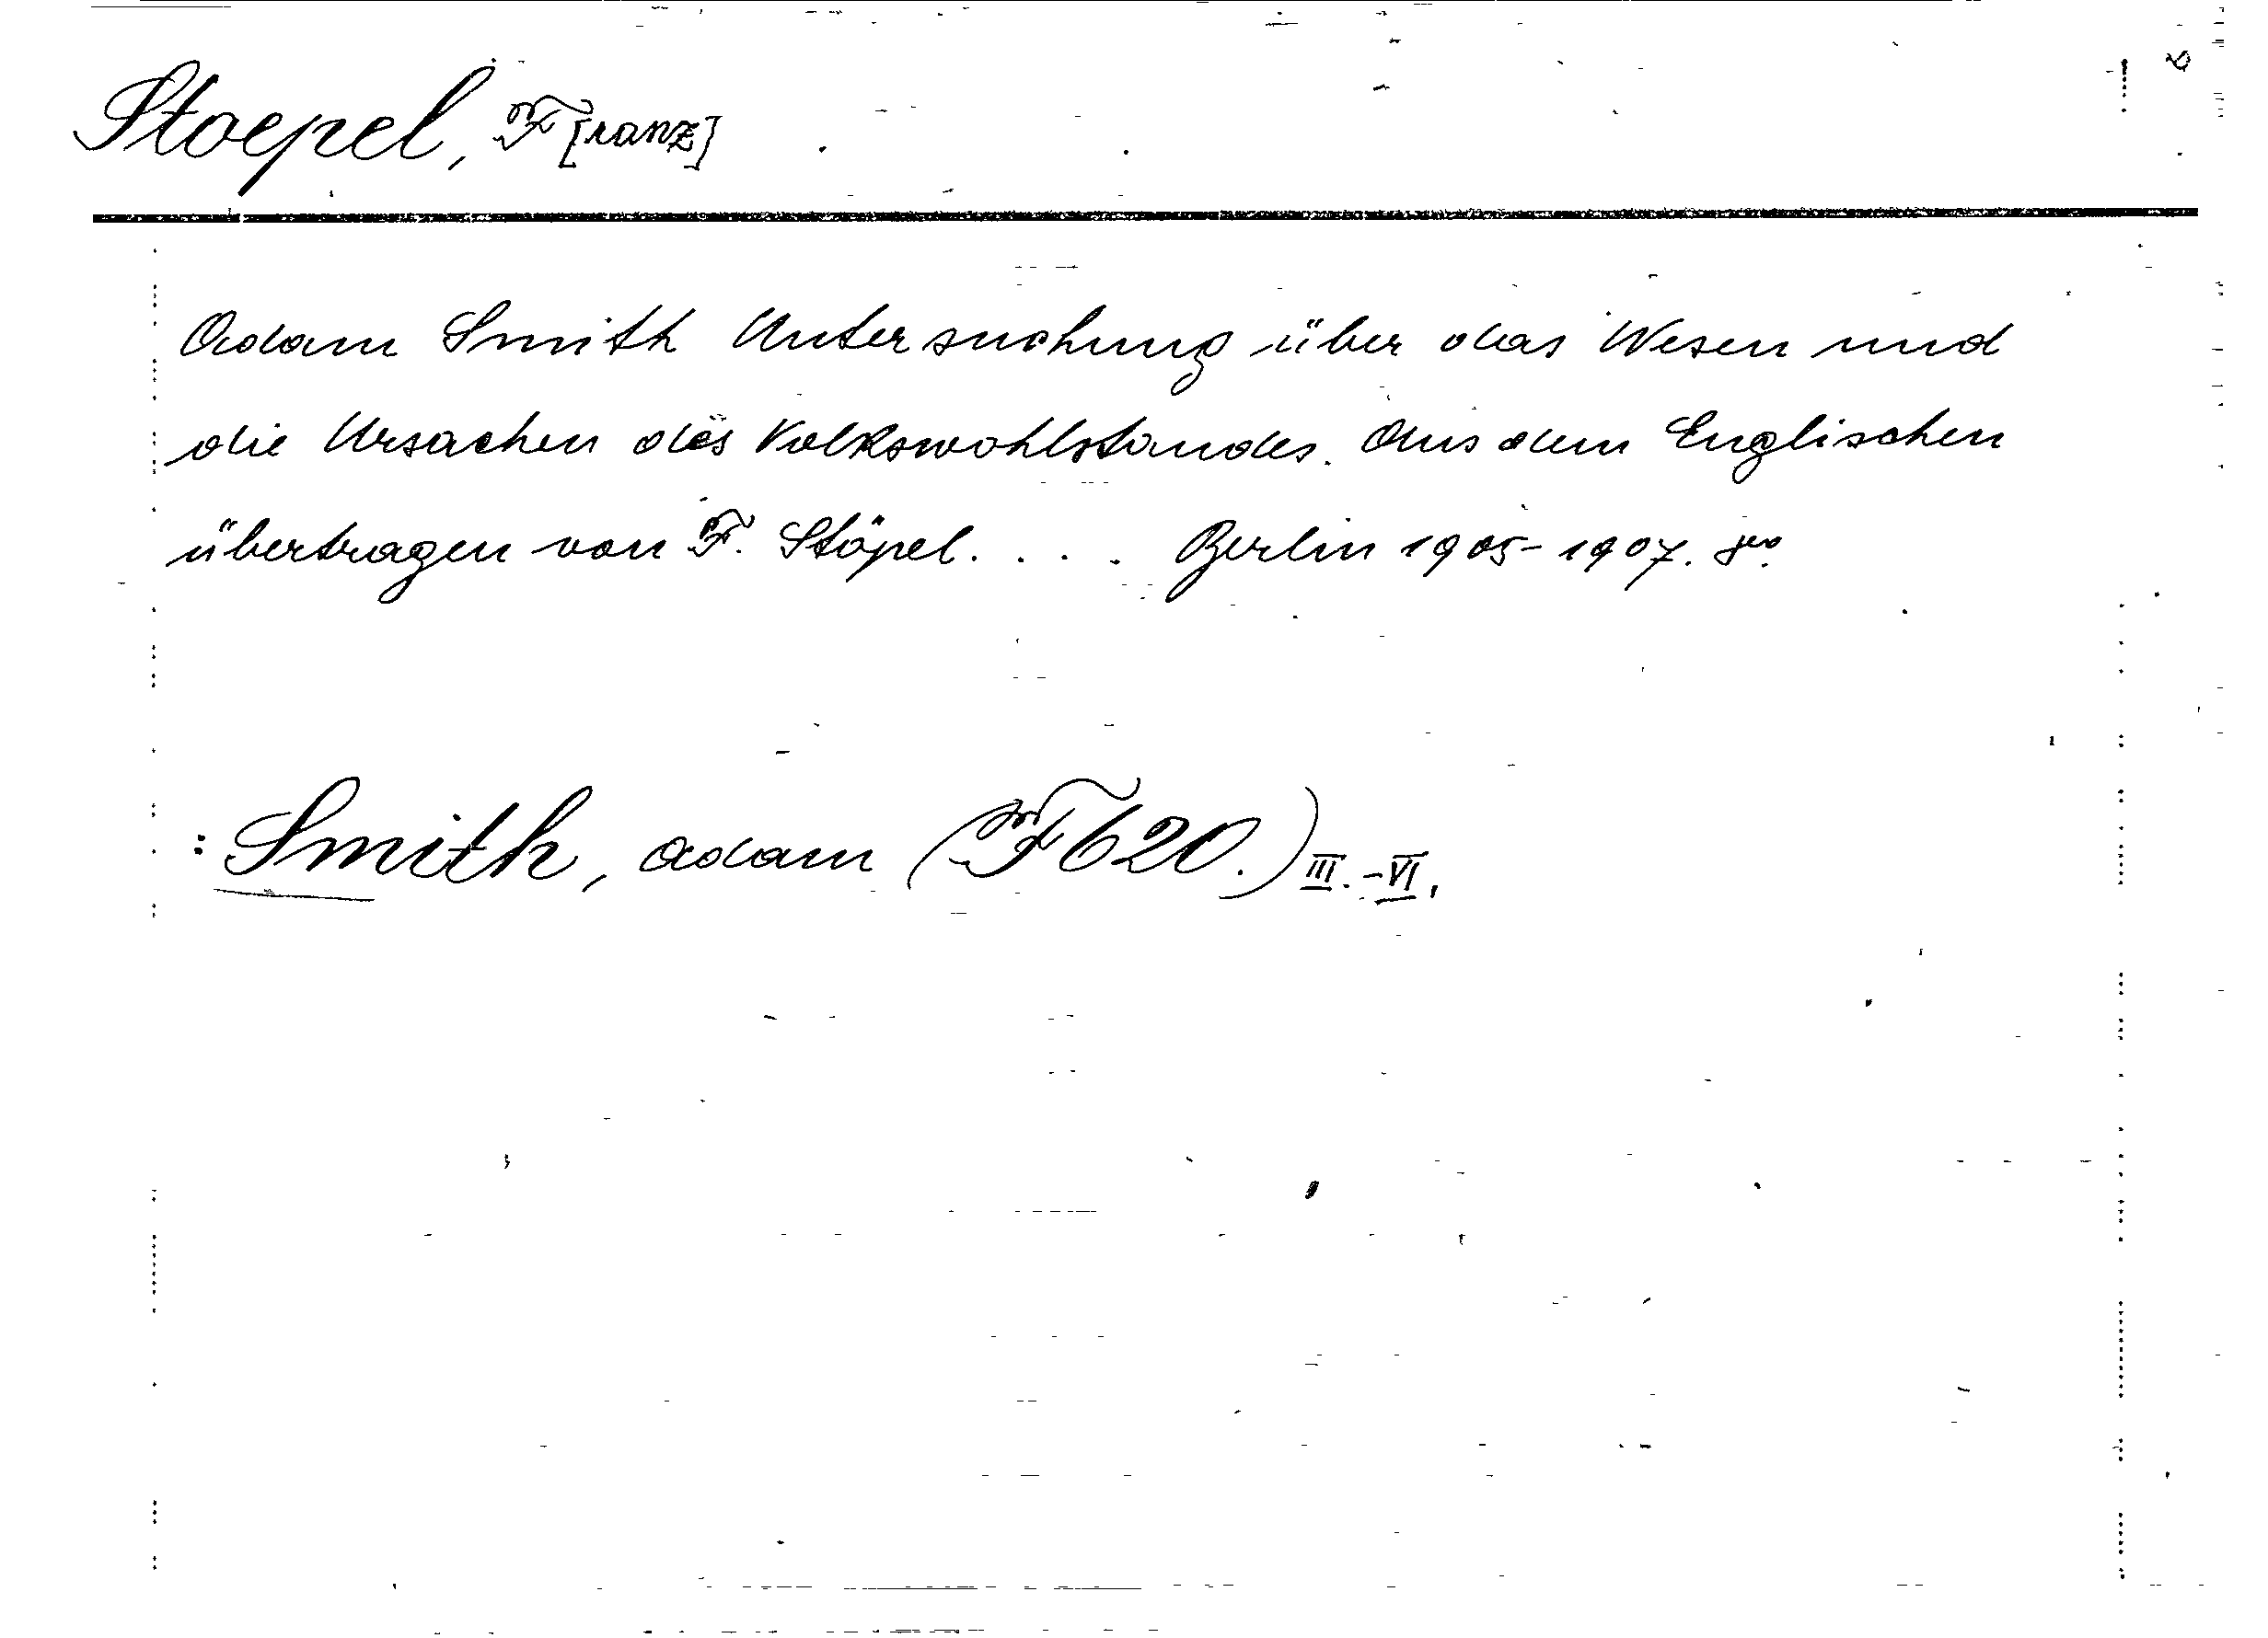 Stoepel, F[ranz]
Adam Smith Untersuchung über das Wesen und
die Ursachen des Volkswohlstandes. Aus dem Englischen
übertragen von F. Stöpel. . . . Berlin 1905-1907. 8°.
: Smith, Adam (F620.) III.-VI.